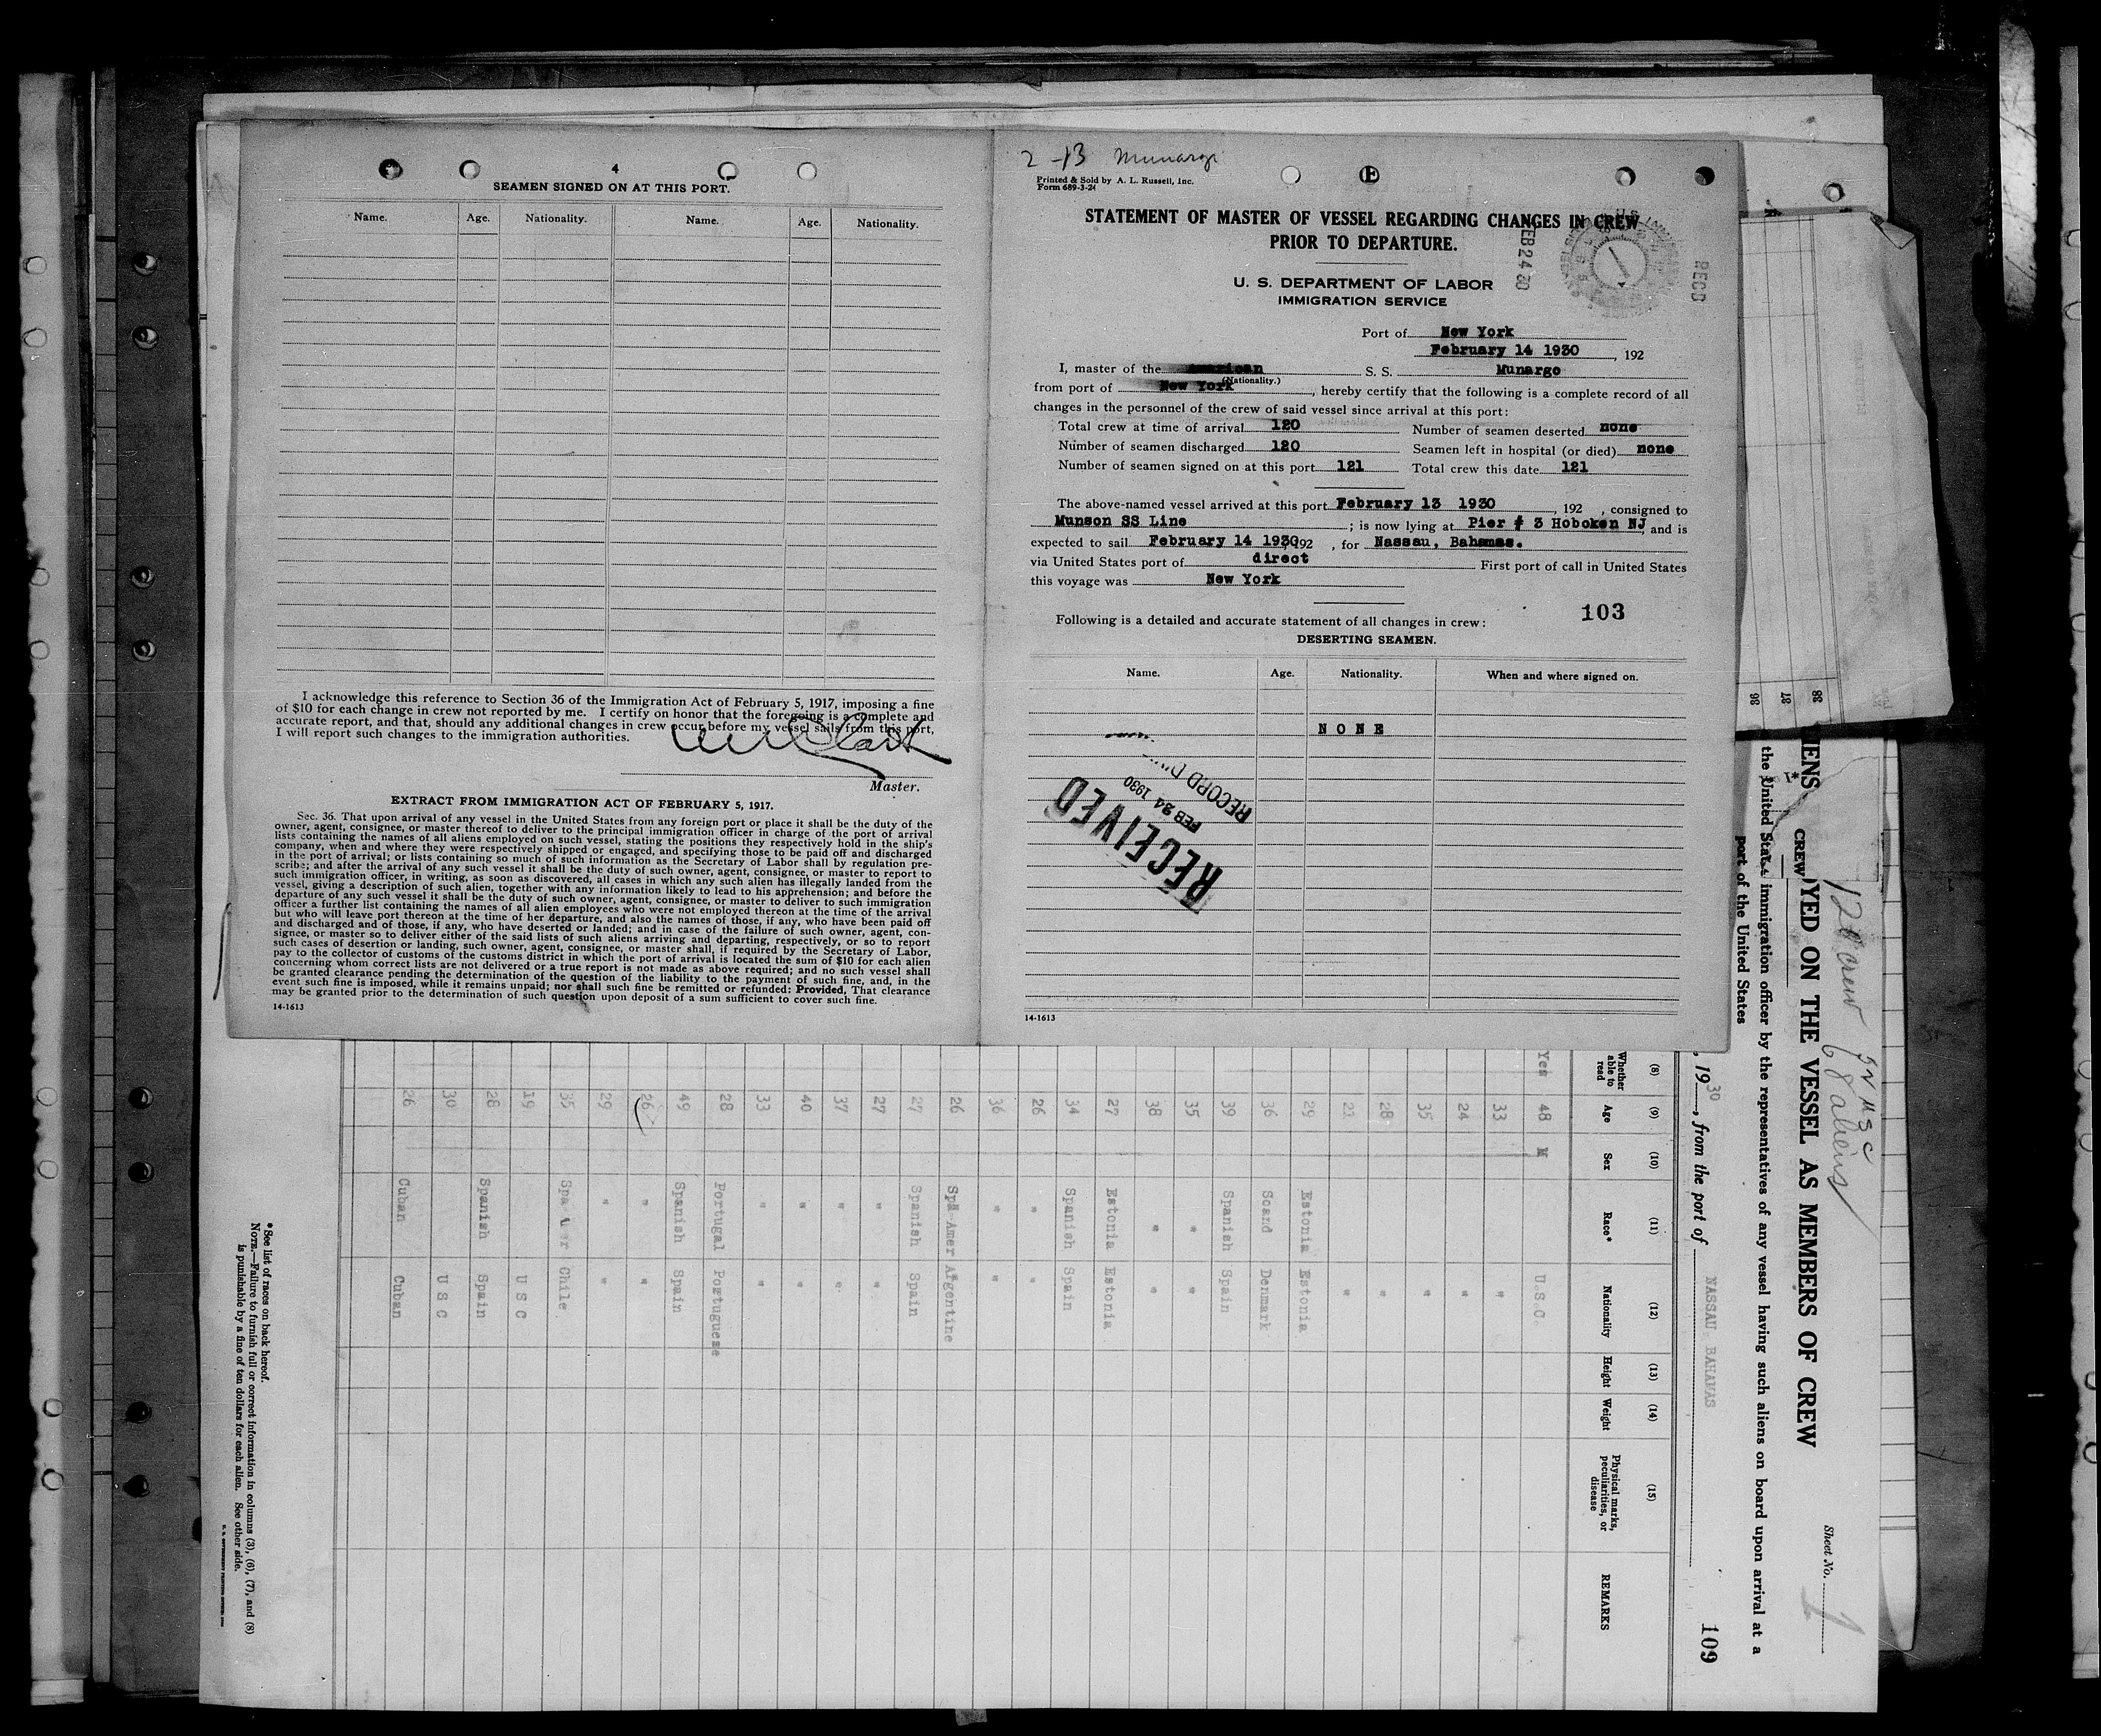 4
SEAMEN SIGNED ON AT THIS PORT.
Name. Age. Nationality. Name. Age. Nationality.
I acknowledge this reference to Section 36 of the Immigration Act of February 5, 1917, imposing a fine
of $10 for each change in crew not reported by me. I certify on honor that the foregoing is a complete and
accurate report, and that, should any additional changes in crew occur before my vessel sails from this port,
I will report such changes to the immigration authorities.
Clark
Master.
EXTRACT FROM IMMIGRATION ACT OF FEBRUARY 5, 1917.
Sec. 36. That upon arrival of any vessel in the United States from any foreign port or place it shall be the duty of the
owner, agent, consignee, or master thereof to deliver to the principal immigration officer in charge of the port of arrival
lists containing the names of all aliens employed on such vessel, stating the positions they respectively hold in the ship's
company, when and where they were respectively shipped or engaged, and specifying those to be paid off and discharged
in the port of arrival; or lists containing so much of such information as the Secretary of Labor shall by regulation pre-
scribe; and after the arrival of any such vessel it shall be the duty of such owner, agent, consignee, or master to report to
such immigration officer, in writing, as soon as discovered, all cases in which any such alien has illegally landed from the
vessel, giving a description of such alien, together with any information likely to lead to his apprehension; and before the
departure of any such vessel it shall be the duty of such owner, agent, consignee, or master to deliver to such immigration
officer a further list containing the names of all alien employees who were not employed thereon at the time of the arrival
but who will leave port thereon at the time of her departure, and also the names of those, if any, who have been paid off
and discharged and of those, if any, who have deserted or landed; and in case of the failure of such owner, agent, con-
signee, or master so to deliver either of the said lists of such aliens arriving and departing, respectively, or so to report
such cases of desertion or landing, such owner, agent, consignee, or master shall, if required by the Secretary of Labor,
pay to the collector of customs of the customs district in which the port of arrival is located the sum of $10 for each alien
concerning whom correct lists are not delivered or a true report is not made as above required; and no such vessel shall
be granted clearance pending the determination of the question of the liability to the payment of such fine, and, in the
event such fine is imposed, while it remains unpaid; nor shall such fine be remitted or refunded: Provided, That clearance
may be granted prior to the determination of such question upon deposit of a sum sufficient to cover such fine.
14-1613
2-13 Munargo
Printed & Sold by A. L. Russell, Inc.
Form 689-3-24
E
STATEMENT OF MASTER OF VESSEL REGARDING CHANGES IN CREW
PRIOR TO DEPARTURE.
FEB 24 30
RECD
U. S. DEPARTMENT OF LABOR
IMMIGRATION SERVICE
Port of New York
February 14 1930, 192
I, master of the American S. S. Munargo
(Nationality.)
from port of New York, hereby certify that the following is a complete record of all
changes in the personnel of the crew of said vessel since arrival at this port:
Total crew at time of arrival 120 Number of seamen deserted none
Number of seamen discharged 120 Seamen left in hospital (or died) none
Number of seamen signed on at this port 121 Total crew this date 121
The above-named vessel arrived at this port February 13 1930, 192 , consigned to
Munson SS Line; is now lying at Pier # 3 Hoboken NJ and is
expected to sail February 14 1930, 192 , for Nassau, Bahamas.
via United States port of direct First port of call in United States
this voyage was New York
103
Following is a detailed and accurate statement of all changes in crew:
DESERTING SEAMEN.
Name. Age. Nationality. When and where signed on.
NONE
RECEIVED
FEB 24 1930
RECORD DIV
14-1613
Sheet No. 1
120 crew
52 USC
68 aliens
IENS
CREW
YED ON THE VESSEL AS MEMBERS OF CREW
the United States immigration officer by the representatives of any vessel having such aliens on board upon arrival at a
port of the United States
, 1930, from the port of NASSAU BAHAMAS
109
36 37 38
(8) (9) (10) (11) (12) (13) (14) (15)
Whether able to read Age Sex Race* Nationality Height Weight Physical marks, peculiarities, or disease REMARKS
Yes 48 M U.S.C.
33 "
24 "
35 "
28 "
23 "
29 Estonia Estonia
36 Scand Denmark
39 Spanish Spain
35 " "
38 " "
27 Estonia Estonia
34 Spanish Spain
26 " "
36 " "
26 Spa-Amer Argentine
27 Spanish Spain
27 " "
37 " "
40 " "
33 " "
28 Portugal Portuguese
49 Spanish Spain
26 " "
29 " "
35 Chile
19 U S C
28 Spanish Spain
30 U S C
26 Cuban Cuban
*See list of races on back hereof.
NOTE.—Failure to furnish full or correct information in columns (3), (6), (7), and (8)
is punishable by a fine of ten dollars for each alien. See other side.